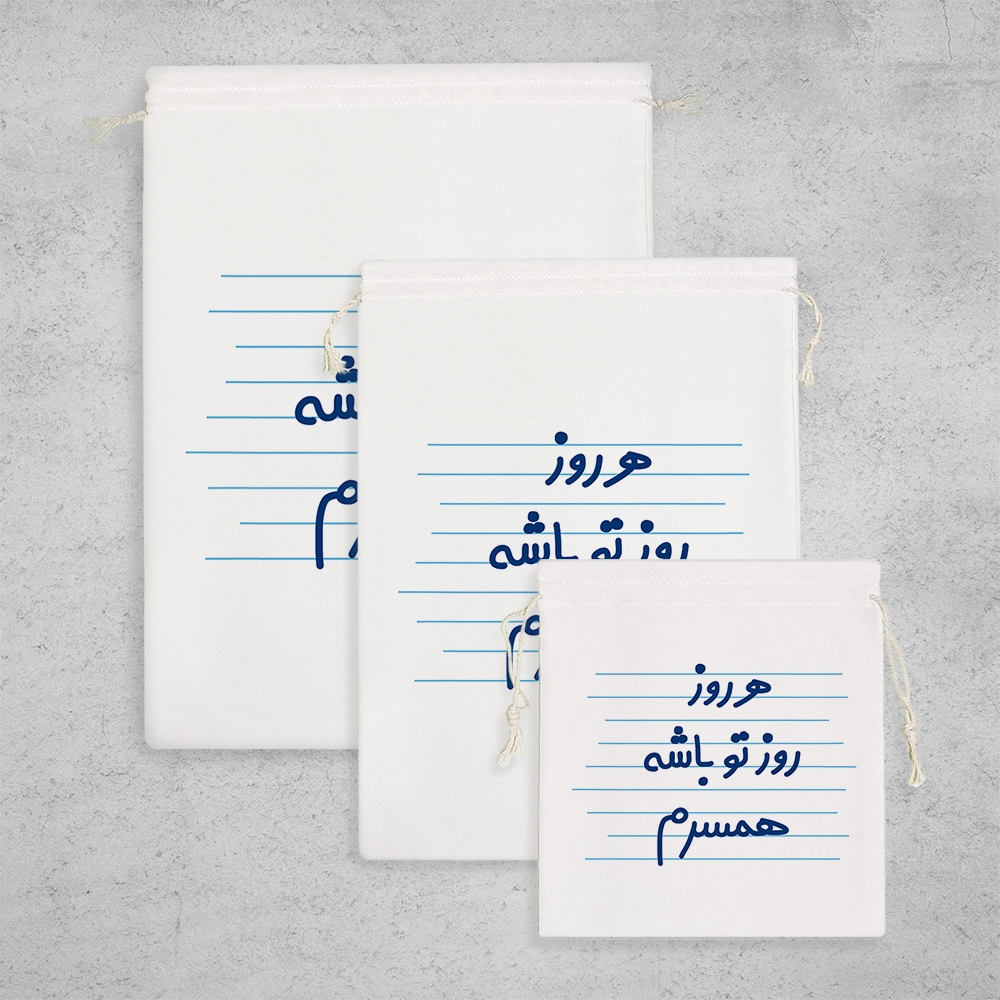 هر روز
روز تو باشه
هر روز
روز تو باشه
همسرم